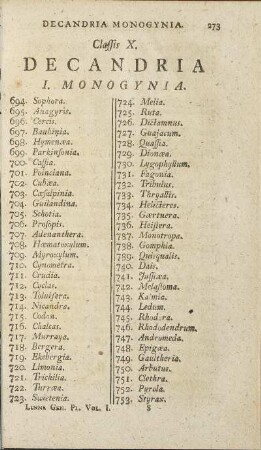 DECANDRIA MONOGYNIA. 273
Classis X.
DECANDRIA
I. MONOGYNIA.
694. Sophora.
695. Anagyris.
696. Cercis.
697. Bauhinia.
698. Hymenæa.
699. Parkinsonia.
700. Cassia.
701. Poinciana.
702. Cubæa.
703. Cæsalpinia.
704. Guilandina.
705. Schotia.
706. Prosopis.
707. Adenanthera.
708. Hæmatoxylum.
709. Myroxylum.
710. Cynometra.
711. Crudia.
712. Cyclas.
713. Toluifera.
714. Nicandra.
715. Codon.
716. Chalcas.
717. Murraya.
718. Bergera.
719. Ekebergia.
720. Limonia.
721. Trichilia.
722. Turræa.
723. Swietenia.
724. Melia.
725. Ruta.
726. Dictamnus.
727. Guajacum.
728. Quassia.
729. Dionæa.
730. Zygophyllum.
731. Fagonia.
732. Tribulus.
733. Thryallis.
734. Helicteres.
735. Gærtnera.
736. Heistera.
737. Monotropa.
738. Gomphia.
739. Quisqualis.
740. Dais.
741. Jussiæa.
742. Melastoma.
743. Kalmia.
744. Ledum.
745. Rhodora.
746. Rhododendrum.
747. Andromeda.
748. Epigæa.
749. Gaultheria.
750. Arbutus.
751. Clethra.
752. Pyrola.
753. Styrax.
LINNE GEN. PL. VOL. I. S